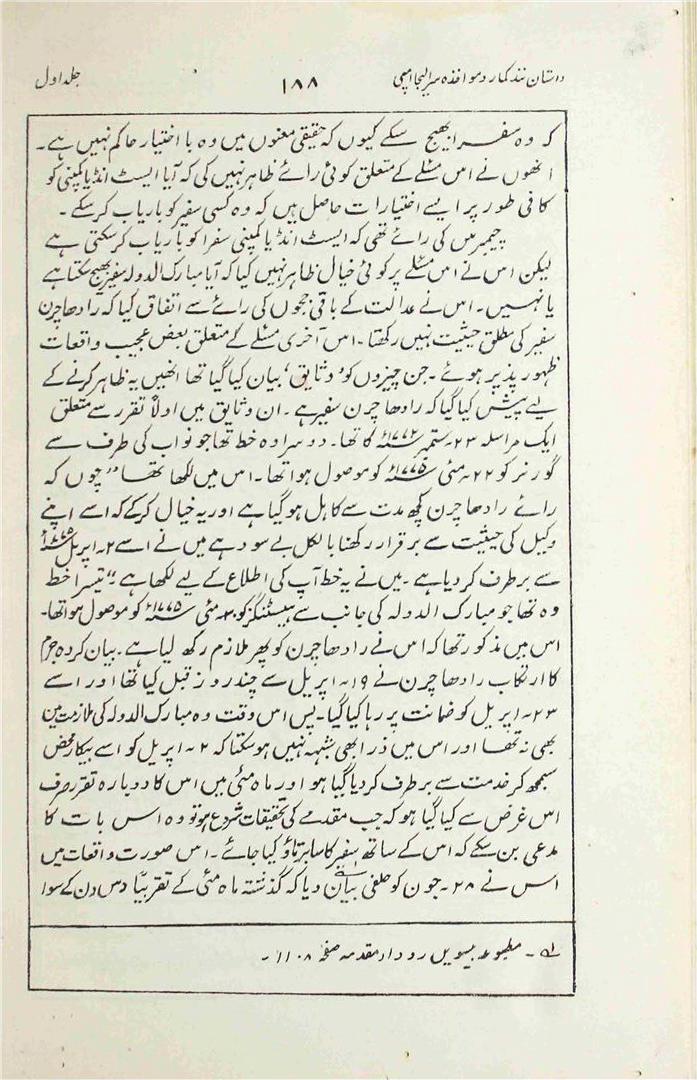 داستان نند کمار و مواخذہ سر الیجا امپی
۱۸۸
جلد اول
کہ وہ سفرا بھیج سکے کیوں کہ حقیقی معنوں میں وہ با اختیار حاکم نہیں ہے۔
انھوں نے اس مسئلے کے متعلق کوئی رائے ظاہر نہیں کی کہ آیا ایسٹ انڈیا کمپنی کو
کافی طور پر ایسے اختیارات حاصل ہیں کہ وہ کسی سفیر کو باریاب کر سکے۔
چیمبرس کی رائے تھی کہ ایسٹ انڈیا کمپنی سفرا کو باریاب کر سکتی ہے
لیکن اس نے اس مسئلے پر کوئی خیال ظاہر نہیں کیا کہ آیا مبارک الدولہ سفیر بھیج سکتا ہے
یا نہیں۔ اس نے عدالت کے باقی ججوں کی رائے سے اتفاق کیا کہ رادھا چرن
سفیر کی مطلق حیثیت نہیں رکھتا۔ اس آخری مسئلے کے متعلق بعض عجیب واقعات
ظہور پذیر ہوئے۔ جن چیزوں کو ’وثایق‘ بیان کیا گیا تھا انھیں یہ ظاہر کرنے کے
لیے پیش کیا گیا کہ رادھا چرن سفیر ہے۔ ان وثایق میں اولاً تقرر سے متعلق
ایک مراسلہ ۲۳۔ ستمبر ۱۷۷۲ء کا تھا۔ دوسرا وہ خط تھا جو نواب کی طرف سے
گورنر کو ۲۲۔ مئی ۱۷۷۵ء کو موصول ہوا تھا۔ اس میں لکھا تھا ”چوں کہ
رائے رادھا چرن کچھ مدت سے کاہل ہو گیا ہے اور یہ خیال کر کے کہ اسے اپنے
وکیل کی حیثیت سے برقرار رکھنا بالکل بے سود ہے میں نے اسے ۲۔ اپریل ۱۷۷۵ء
سے برطرف کر دیا ہے۔ میں نے یہ خط آپ کی اطلاع کے لیے لکھا ہے“ تیسرا خط
وہ تھا جو مبارک الدولہ کی جانب سے ہیسٹنگز کو ۳۰۔ مئی ۱۷۷۵ء کو موصول ہوا تھا۔
اس میں مذکور تھا کہ اس نے رادھا چرن کو پھر ملازم رکھ لیا ہے۔ بیان کردہ جرم
کا ارتکاب رادھا چرن نے ۱۹۔ اپریل سے چند روز قبل کیا تھا اور اسے
۲۳۔ اپریل کو ضمانت پر رہا کیا گیا۔ پس اس وقت وہ مبارک الدولہ کی ملازمت میں
بھی نہ تھا اور اس میں ذرا بھی شبہہ نہیں ہو سکتا کہ ۲۔ اپریل کو اسے بیکار محض
سمجھ کر خدمت سے برطرف کر دیا گیا ہو اور ماہ مئی میں اس کا دوبارہ تقرر صرف
اس غرض سے کیا گیا ہو کہ جب مقدمے کی تحقیقات شروع ہو تو وہ اس بات کا
مدعی بن سکے کہ اس کے ساتھ سفیر کا سا برتاؤ کیا جائے۔ اس صورت واقعات میں
اس نے ۲۸۔ جون کو حلفی بیان دیا کہ گذشتہ ماہ مئی کے تقریباً دس دن کے سوا
لے۔ مطبوعہ بیسویں روداد مقدمہ صفحہ ۱۱۰۸۔